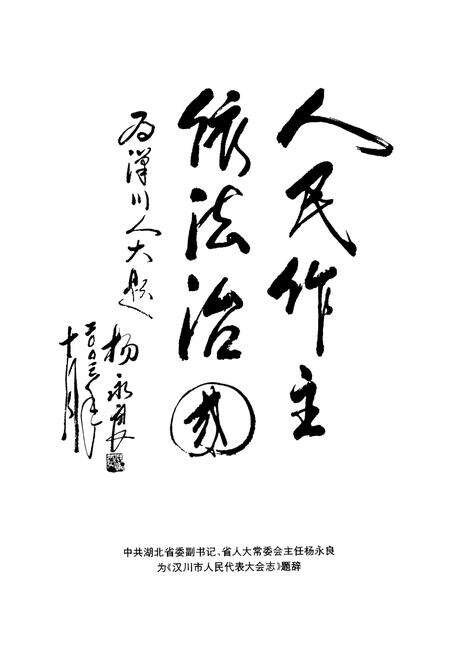 人民作主
依法治國
为漢川人大题
杨永良
二〇〇三年
十月
中共湖北省委副书记、省人大常委会主任杨永良
为《汉川市人民代表大会志》题辞